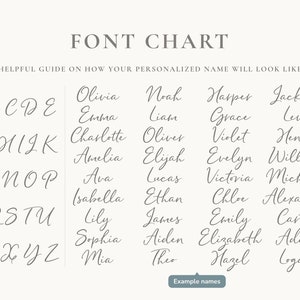 FONT CHART
HELPFUL GUIDE ON HOW YOUR PERSONALIZED NAME WILL LOOK LIKE
C D E
H I J K
N O P
S T U
X Y Z
Olivia Noah Harper Jack
Emma Liam Grace Le
Charlotte Oliver Violet Hen
Amelia Elijah Evelyn Will
Ava Lucas Victoria Mich
Isabella Ethan Chloe Alexa
Lily James Emily Car
Sophia Aiden Elizabeth Ade
Mia Theo Hazel Loga
Example names